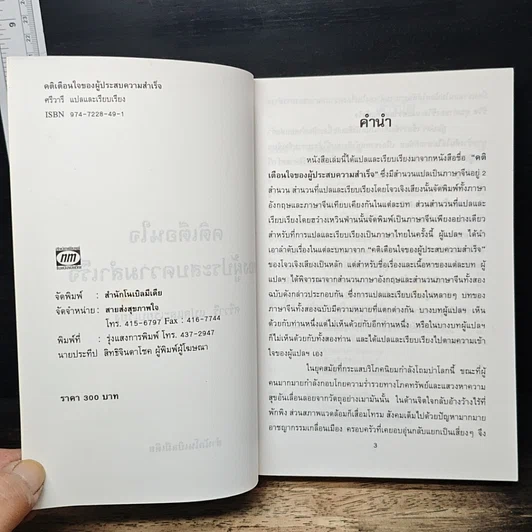 คติเตือนใจของผู้ประสบความสำเร็จ
ศรีวารี แปลและเรียบเรียง
ISBN 974-7228-49-1
nm
จัดพิมพ์ : สำนักโนเบิลมีเดีย
จัดจำหน่าย : สายส่งสุขภาพใจ
โทร. 415-6797 Fax : 416-7744
พิมพ์ที่ : รุ่งแสงการพิมพ์ โทร. 437-2947
นายประทีป สิทธิจินดาโชค ผู้พิมพ์ผู้โฆษณา
ราคา 300 บาท
คำนำ
หนังสือเล่มนี้ได้แปลและเรียบเรียงมาจากหนังสือชื่อ "คติ
เตือนใจของผู้ประสบความสำเร็จ" ซึ่งมีสำนวนแปลเป็นภาษาจีนอยู่ 2
สำนวน สำนวนที่แปลและเรียบเรียงโดยโจวเจิงเสียงนั้นจัดพิมพ์ทั้งภาษา
อังกฤษและภาษาจีนเทียบเคียงกันในแต่ละบท ส่วนสำนวนที่แปลและ
เรียบเรียงโดยฮว่างเหรินฟ่านนั้นจัดพิมพ์เป็นภาษาจีนเพียงอย่างเดียว
สำหรับที่การแปลและเรียบเรียงเป็นภาษาไทยในครั้งนี้ ผู้แปลฯ ได้นำ
เอาลำดับเรื่องในแต่ละบทมาจาก "คติเตือนใจของผู้ประสบความสำเร็จ"
ของโจวเจิงเสียงเป็นหลัก แต่สำหรับชื่อเรื่องและเนื้อหาของแต่ละบท ผู้
แปลฯ ได้พิจารณาจากสำนวนภาษาอังกฤษและสำนวนภาษาจีนทั้งสอง
ฉบับดังกล่าวประกอบกัน ซึ่งการแปลและเรียบเรียงในหลายๆ บทของ
ภาษาจีนทั้งสองฉบับมีความหมายที่แตกต่างกัน บางบทผู้แปลฯ เห็น
ด้วยกับท่านหนึ่งแต่ไม่เห็นด้วยกับอีกท่านหนึ่ง หรือในบางบทผู้แปลฯ
ก็ไม่เห็นด้วยกับทั้งสองท่าน และได้แปลและเรียบเรียงไปตามความเข้า
ใจของผู้แปลฯ เอง
ในยุคสมัยที่กระแสบริโภคนิยมกำลังโถมถ่าโลกนี้ ขณะที่ผู้
คนมากมายกำลังกอบโกยความร่ำรวยทางโภคทรัพย์และแสวงหาความ
สุขอันเลื่อนลอยจากวัตถุอย่างเมามันนั้น ในด้านจิตใจกลับอ้างว้างไร้ที่
พักพิง ส่วนสภาพแวดล้อมก็เสื่อมโทรม สังคมเต็มไปด้วยปัญหามากมาย
อาชญากรรมเกลื่อนเมือง ครอบครัวที่เคยอบอุ่นกลับแยกเป็นเสี่ยงๆ จึง
3